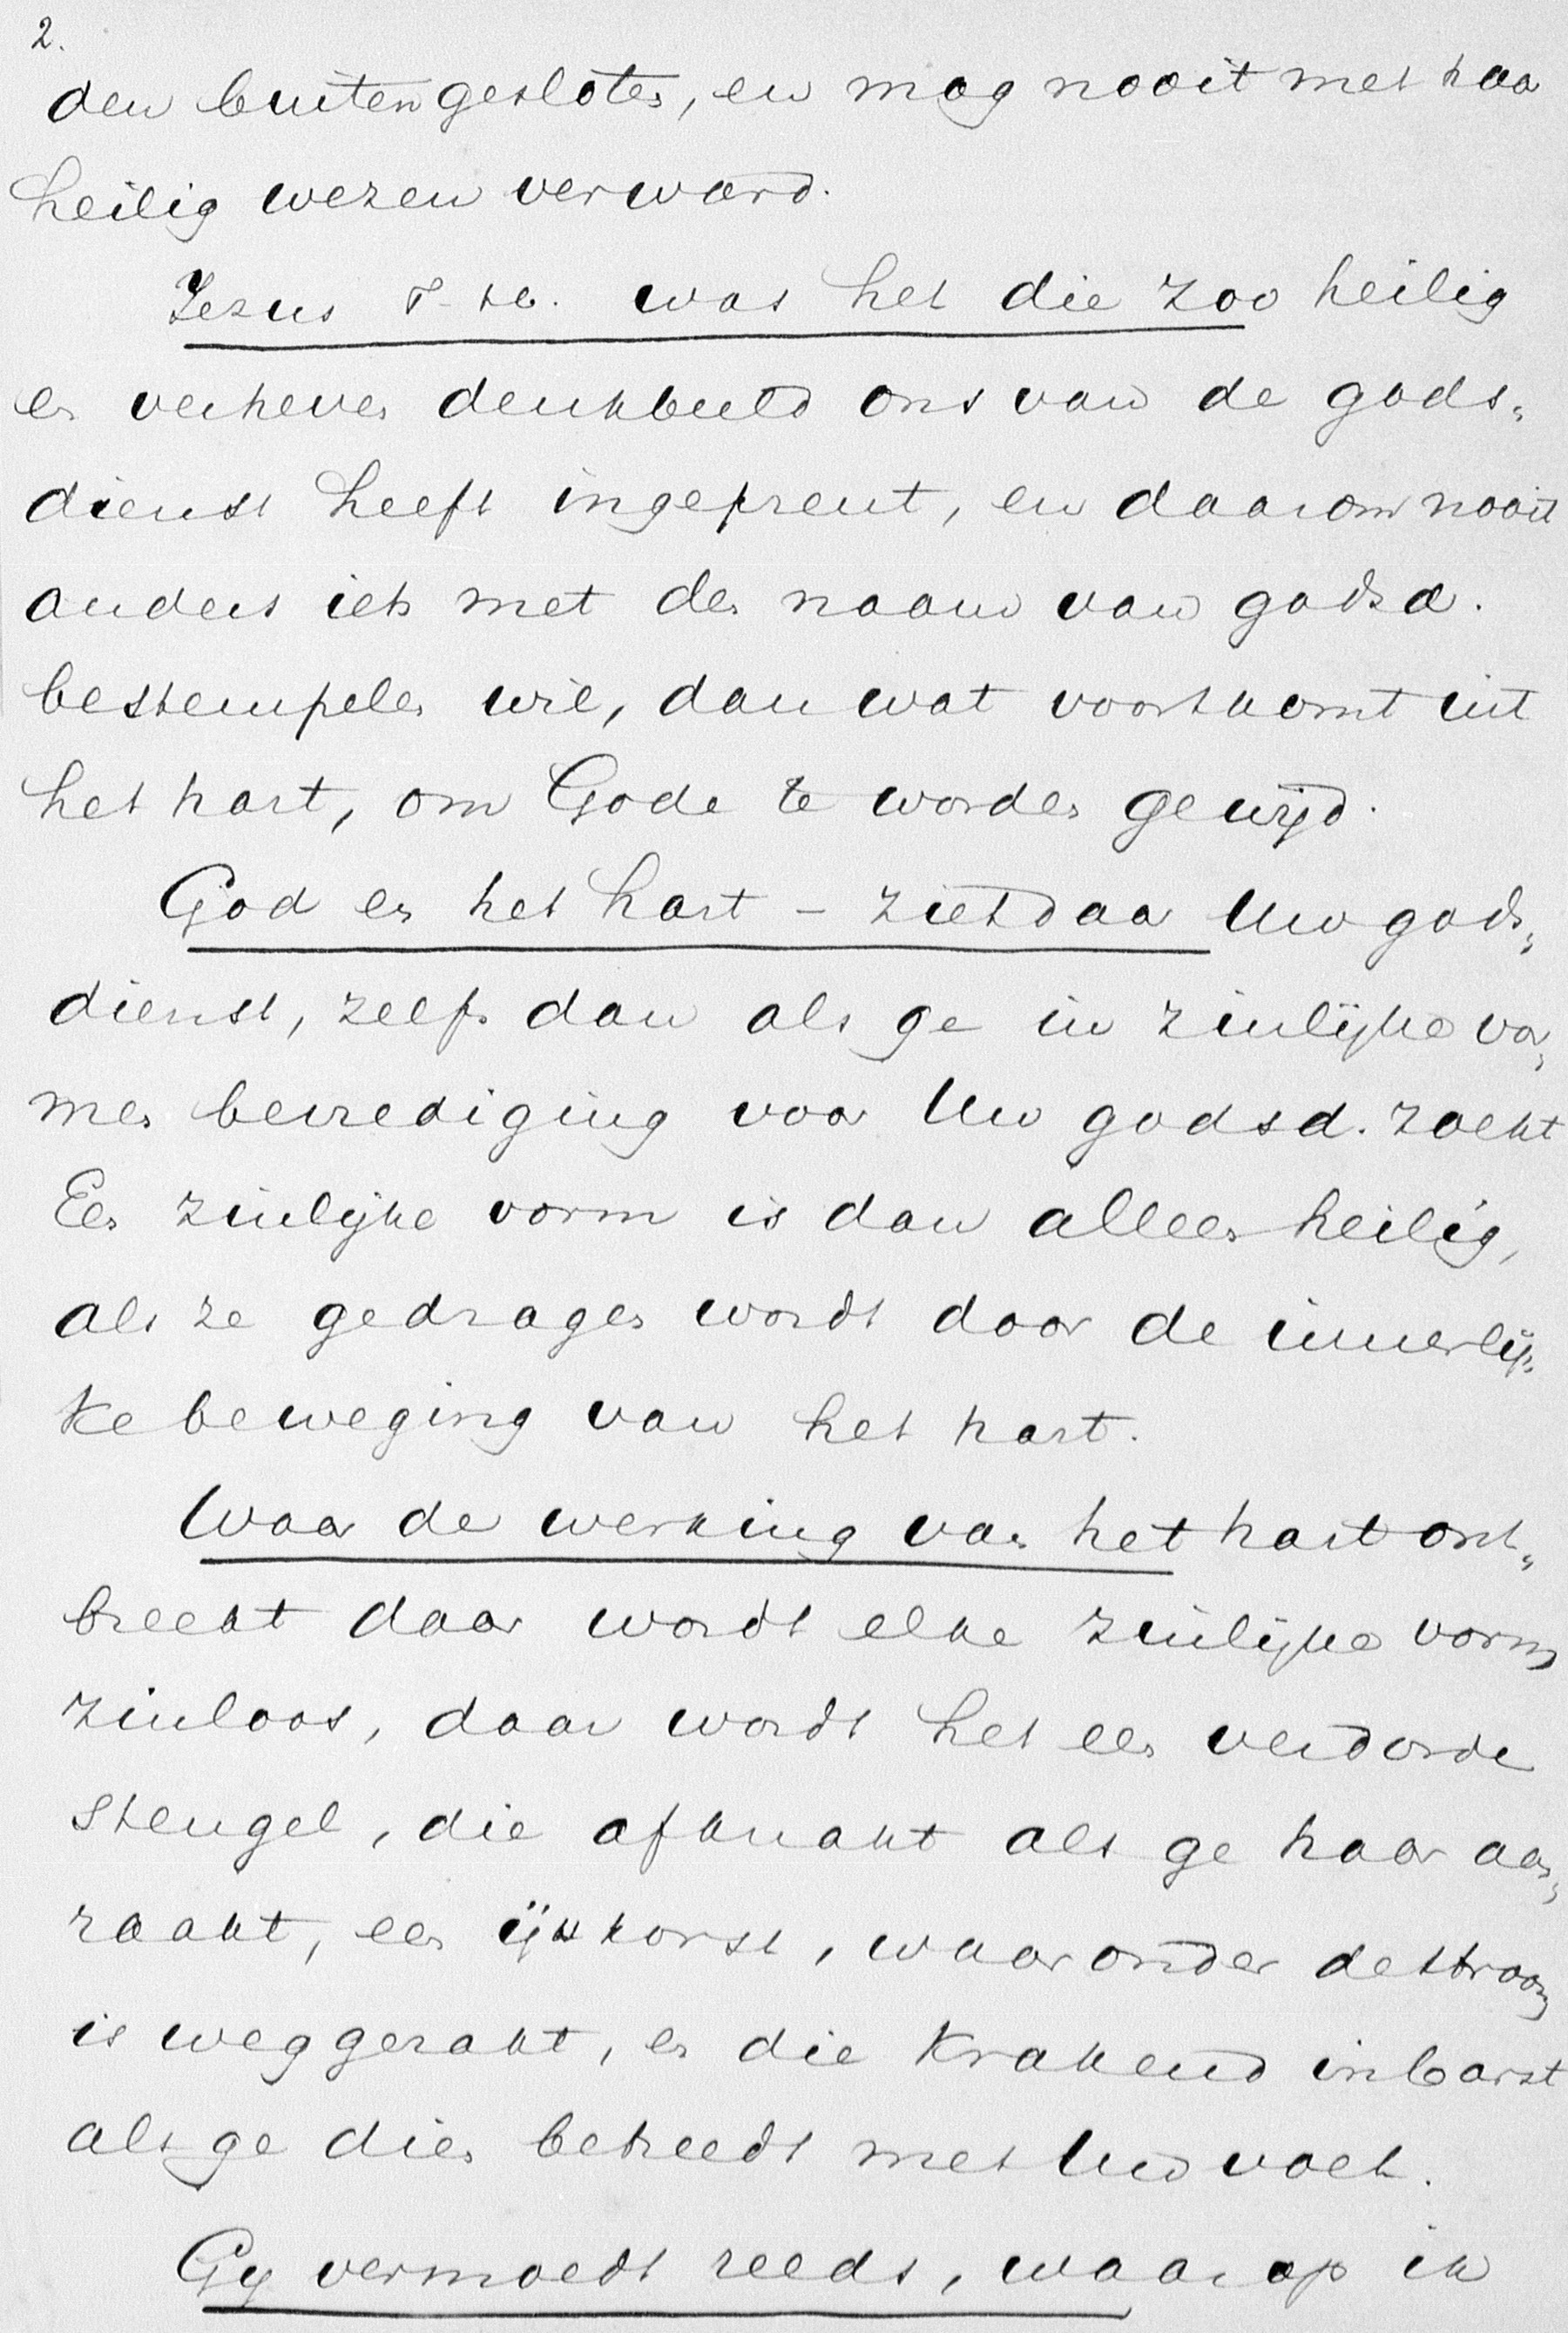 2.
den buitengesloten, en mag nooit met haar
heilig wezen verward.
Jezus was het die zoo heilig
en verheven denkbeeld ons van de gods„
dienst heeft ingeprent, en daarom nooit
anders iets met den naam van godsd.
bestempelen wil, dan wat voortkomt uit
het hart, om Gode te worden gewijd.
God en het hart – ziet daar Uw gods„
dienst, zelfs dan als ge in zinlijke vor„
men bevrediging voor Uw godsd. zoekt
Een zinlijke vorm is dan alleen heilig,
als ze gedragen wordt door de innerlij„
ke beweging van het hart.
Waar de werking van het hart ont„
breekt daar wordt elke zinlijke vorm
zinloos, daar wordt het een verdorde
stengel, die afknakt als ge haar aan„
raakt, een ijskorst, waaronder de stroom
is weggezakt, en die krakend inbarst
als ge dien betreedt met Uw voet.
Gy vermoedt reeds, waarop ik